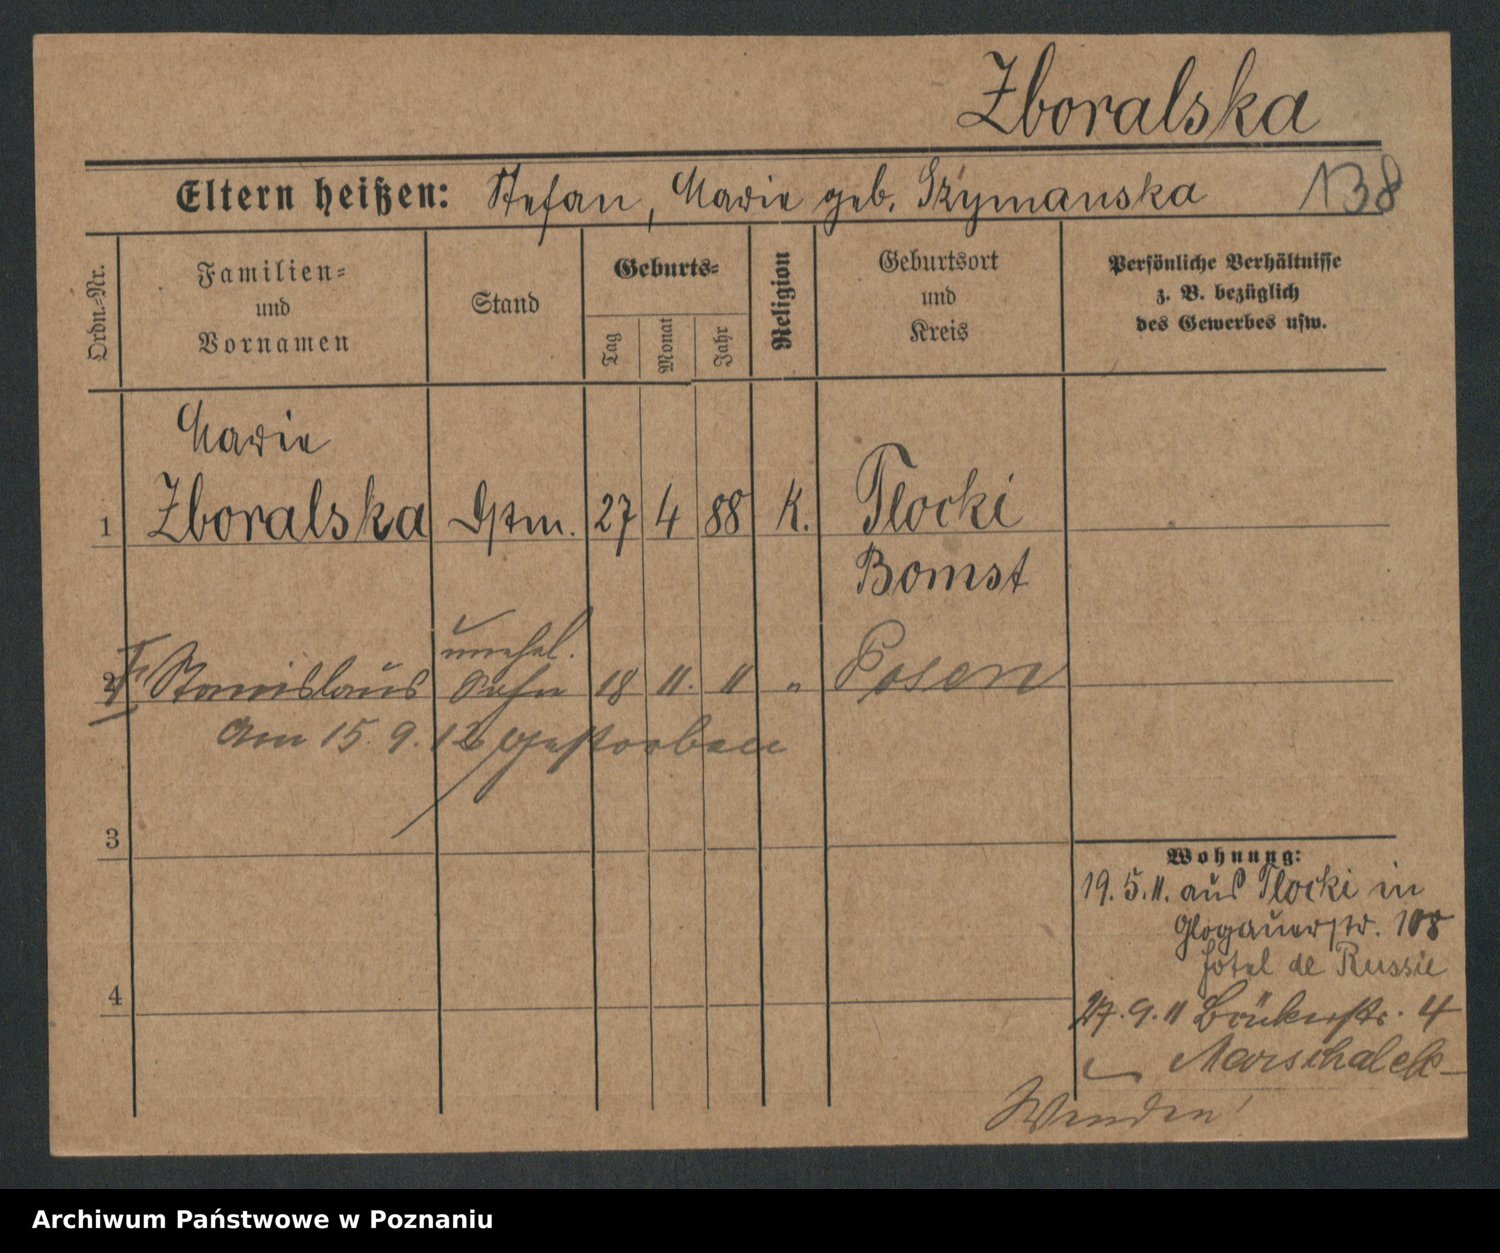 Zboralska
Eltern heißen: Stefan, Marie geb. Szymanska 138
Ordn.-Nr.
Familien-
und
Vornamen
Stand
Geburts-
Tag
Monat
Jahr
Religion
Geburtsort
und
Kreis
Persönliche Verhältnisse
z. B. bezüglich
des Gewerbes usw.
Marie
1 Zboralska Dstm. 27 4 88 K. Tlocki
Bomst
unehel.
2 Stanislaus Sohn 18 11. 11 " Posen
am 15.9.12 gestorben
3
4
Wohnung:
19.5.11. aus Tlocki in
Glogauerstr. 108
Hotel de Russie
27.9.11 Bäckerstr. 4
Marschalek
Wenden!
Archiwum Państwowe w Poznaniu